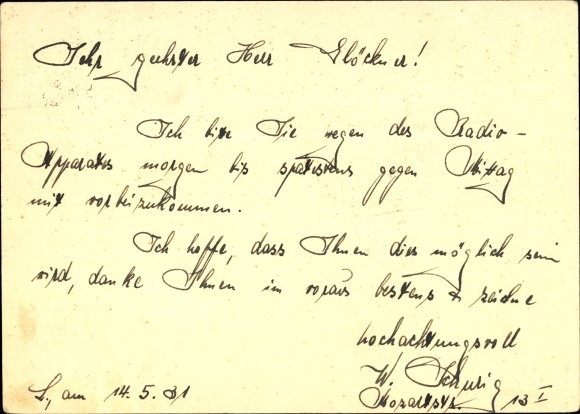 Sehr geehrter Herr Glöckner!
Ich bitte Sie wegen des Radio-
Apparates morgen bis spätestens gegen Mittag
mit vorbeizukommen.
Ich hoffe, dass Ihnen dies möglich sein
wird, danke Ihnen im voraus bestens & zeichne
hochachtungsvoll
W. Schurig
Mozartstr. 13 I
L., am 14. 5. 31